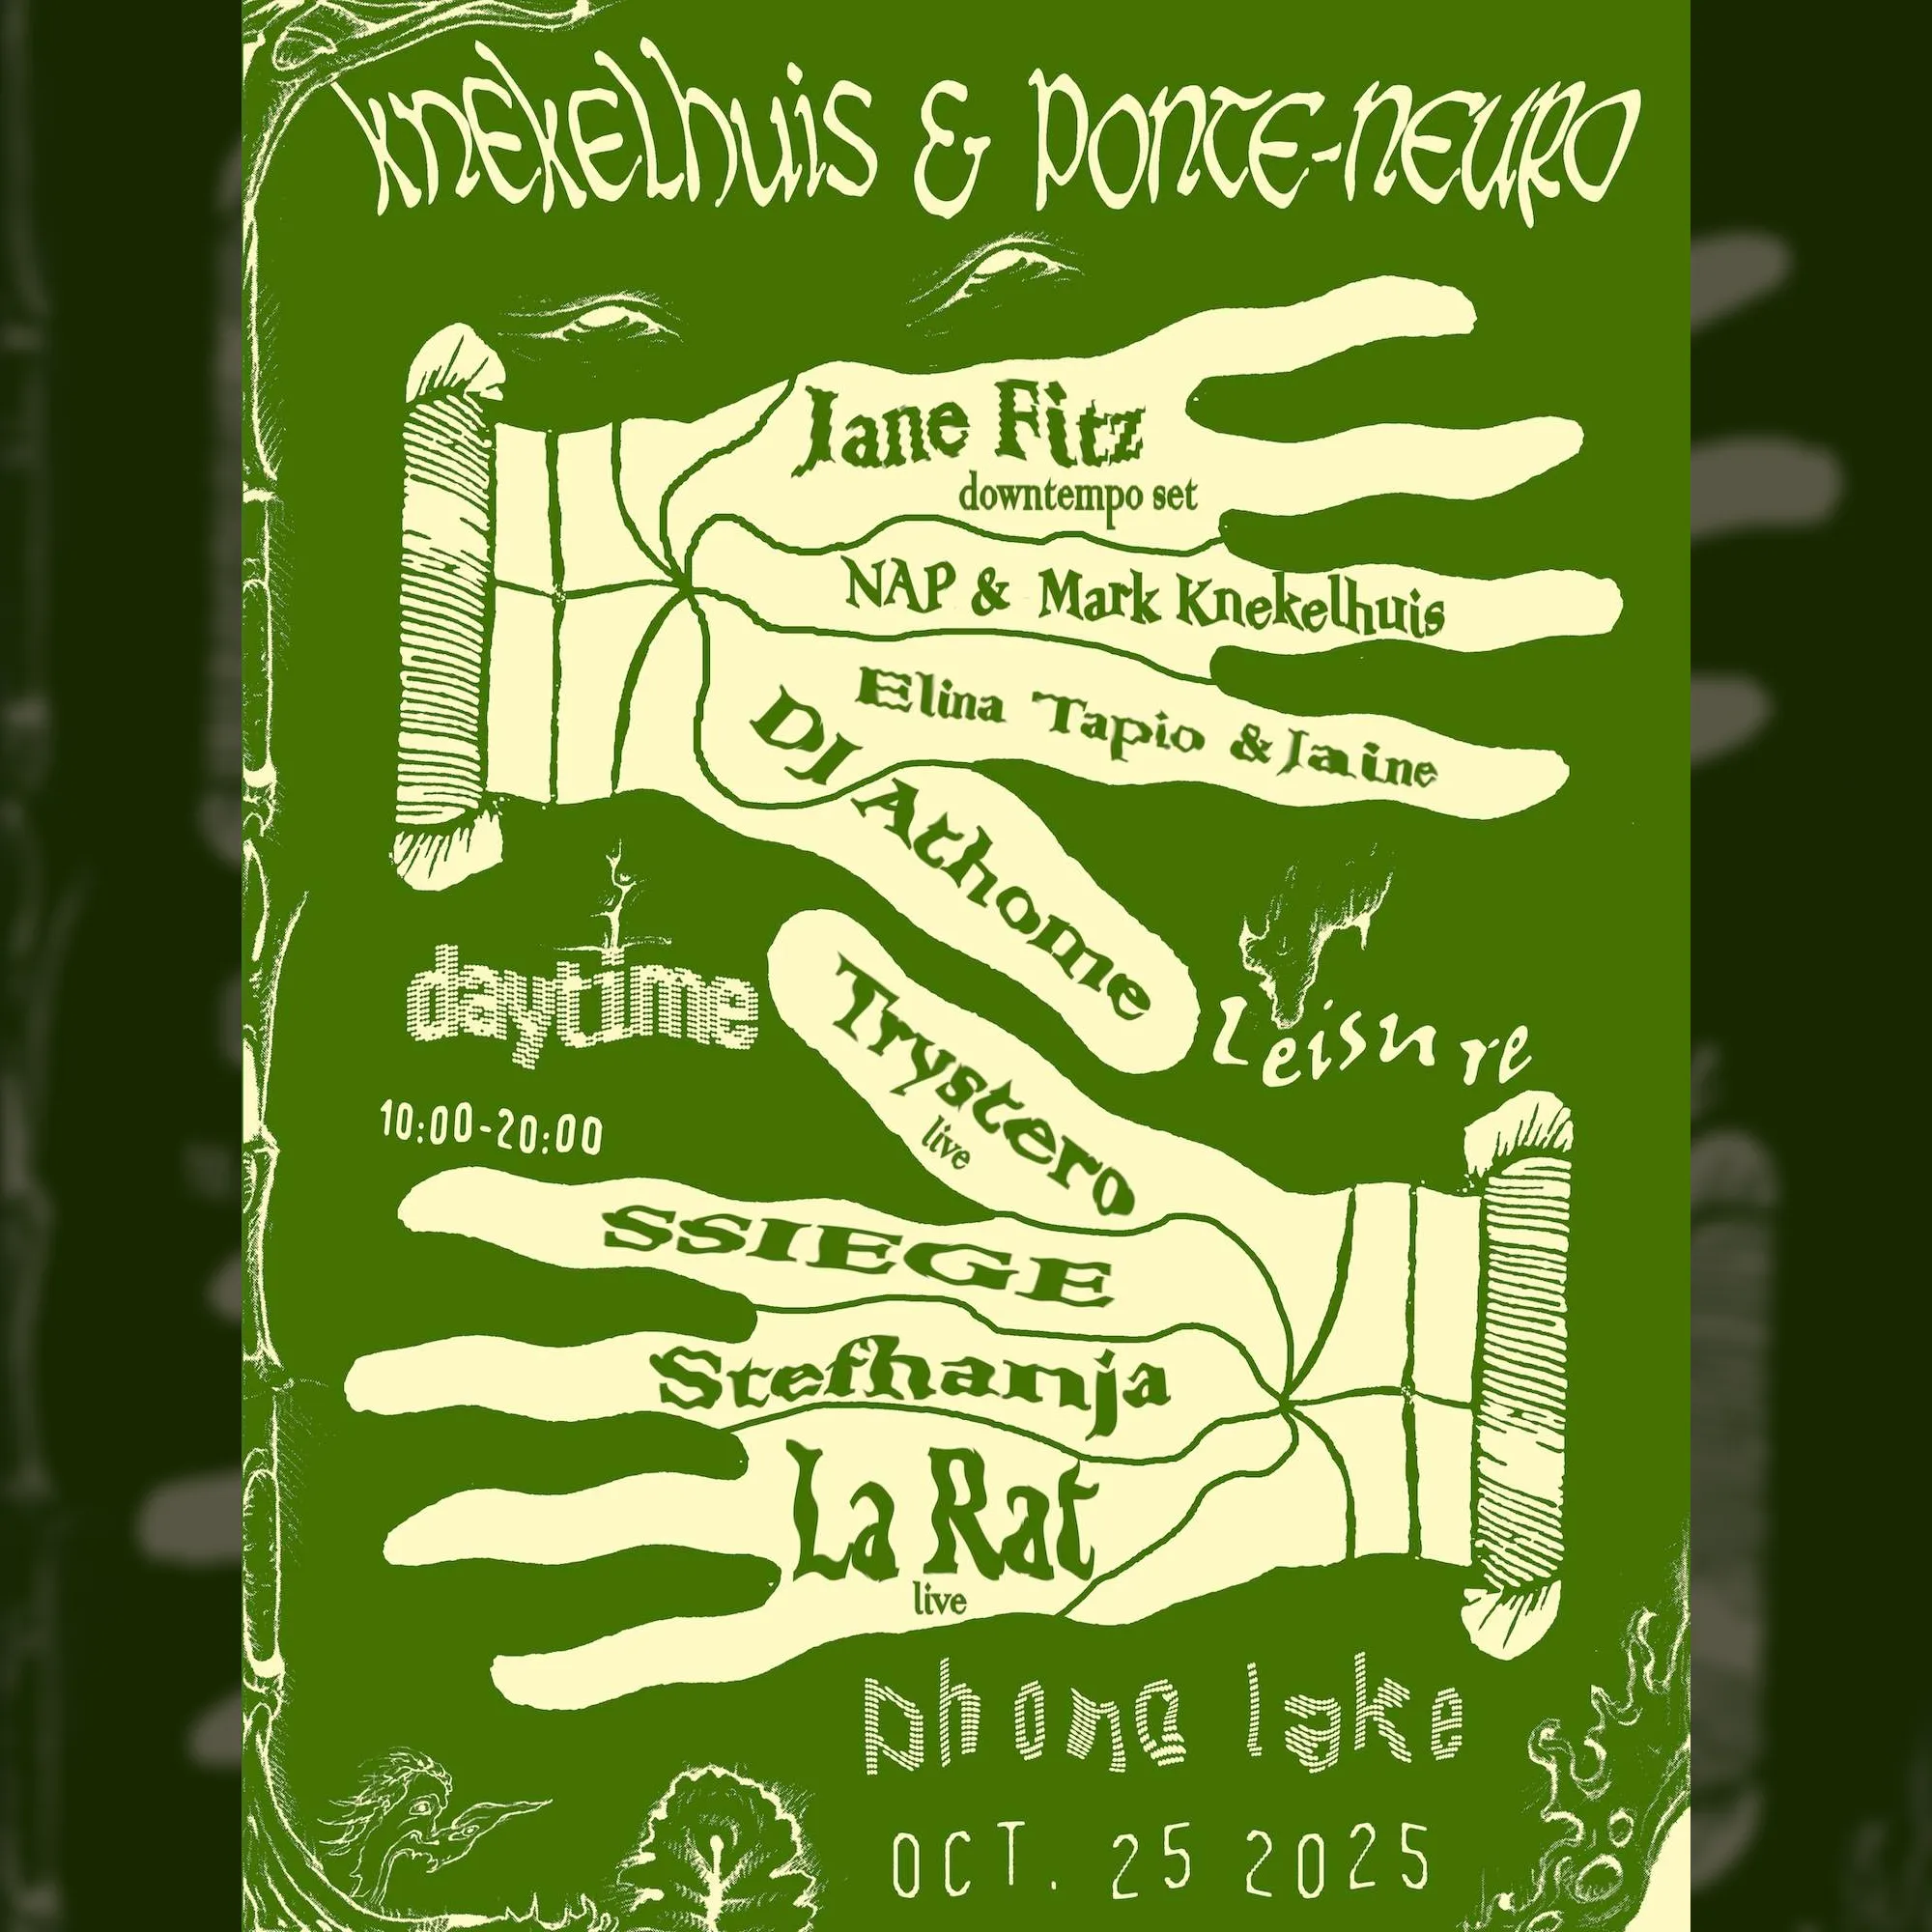 knekelhuis & ponte-neuro
Jane Fitz
downtempo set
NAP & Mark Knekelhuis
Elina Tapio & Jaine
DJ Athome
daytime
Leisure
10:00-20:00
Trystero
live
SSIEGE
Stefhanja
La Rat
live
phone lake
OCT. 25 2025